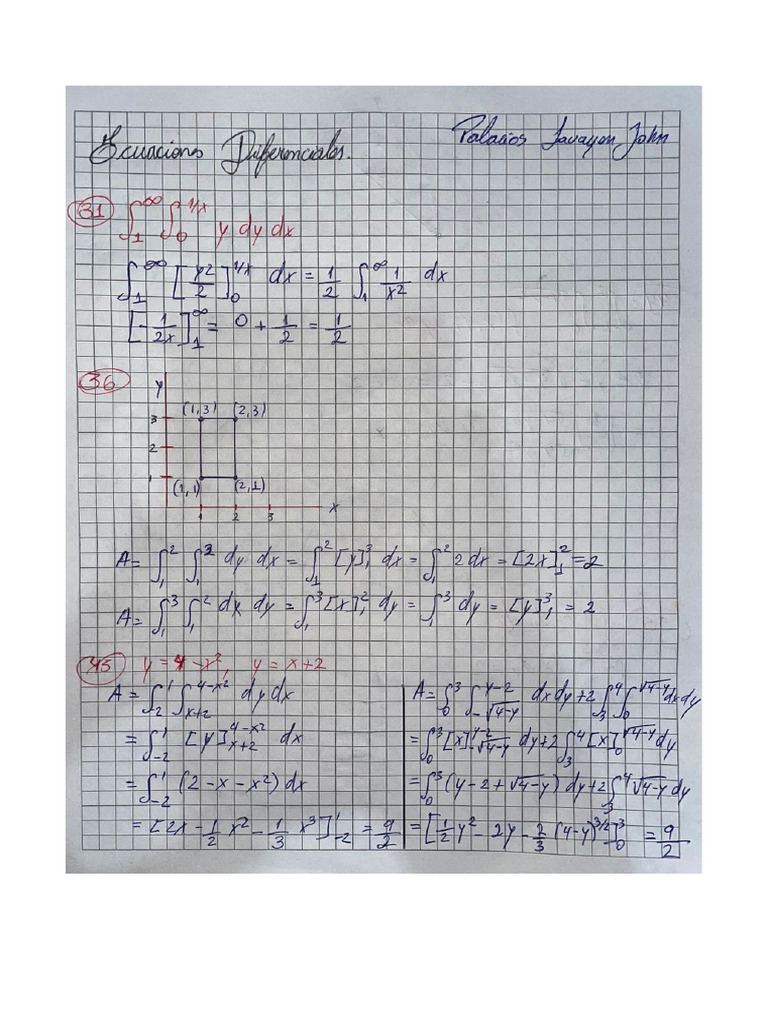 Ecuacions Diferenciales. Palacios Lavayen John
31 ∫_1^∞ ∫_0^{1/x} y dy dx
∫_1^∞ [y²/2]_0^{1/x} dx = 1/2 ∫_1^∞ 1/x² dx
[-1/2x]_1^∞ = 0 + 1/2 = 1/2
36
y
3 (1,3) (2,3)
2
1 (1,1) (2,1)
x
1 2 3
A = ∫_1^2 ∫_1^3 dy dx = ∫_1^2 [y]_1^3 dx = ∫_1^2 2 dx = [2x]_1^2 = 2
A = ∫_1^3 ∫_1^2 dx dy = ∫_1^3 [x]_1^2 dy = ∫_1^3 dy = [y]_1^3 = 2
y = 4 - x², y = x + 2
A = ∫_{-2}^1 ∫_{x+2}^{4-x²} dy dx
= ∫_{-2}^1 [y]_{x+2}^{4-x²} dx
= ∫_{-2}^1 (2 - x - x²) dx
= [2x - 1/2 x² - 1/3 x³]_{-2}^1 = 9/2
A = ∫_0^3 ∫_{-√4-y}^{y-2} dx dy + 2 ∫_3^4 ∫_0^{√4-y} dx dy
= ∫_0^3 [x]_{-√4-y}^{y-2} dy + 2 ∫_3^4 [x]_0^{√4-y} dy
= ∫_0^3 (y - 2 + √4-y) dy + 2 ∫_3^4 √4-y dy
= [1/2 y² - 2y - 2/3 (4-y)^{3/2}]_0^3 = 9/2